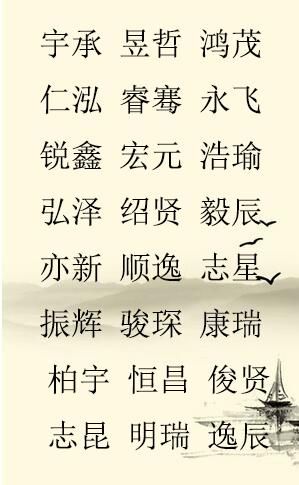 宇承 昱哲 鸿茂
仁泓 睿骞 永飞
锐鑫 宏元 浩瑜
弘泽 绍贤 毅辰
亦新 顺逸 志星
振辉 骏琛 康瑞
柏宇 恒昌 俊贤
志昆 明瑞 逸辰